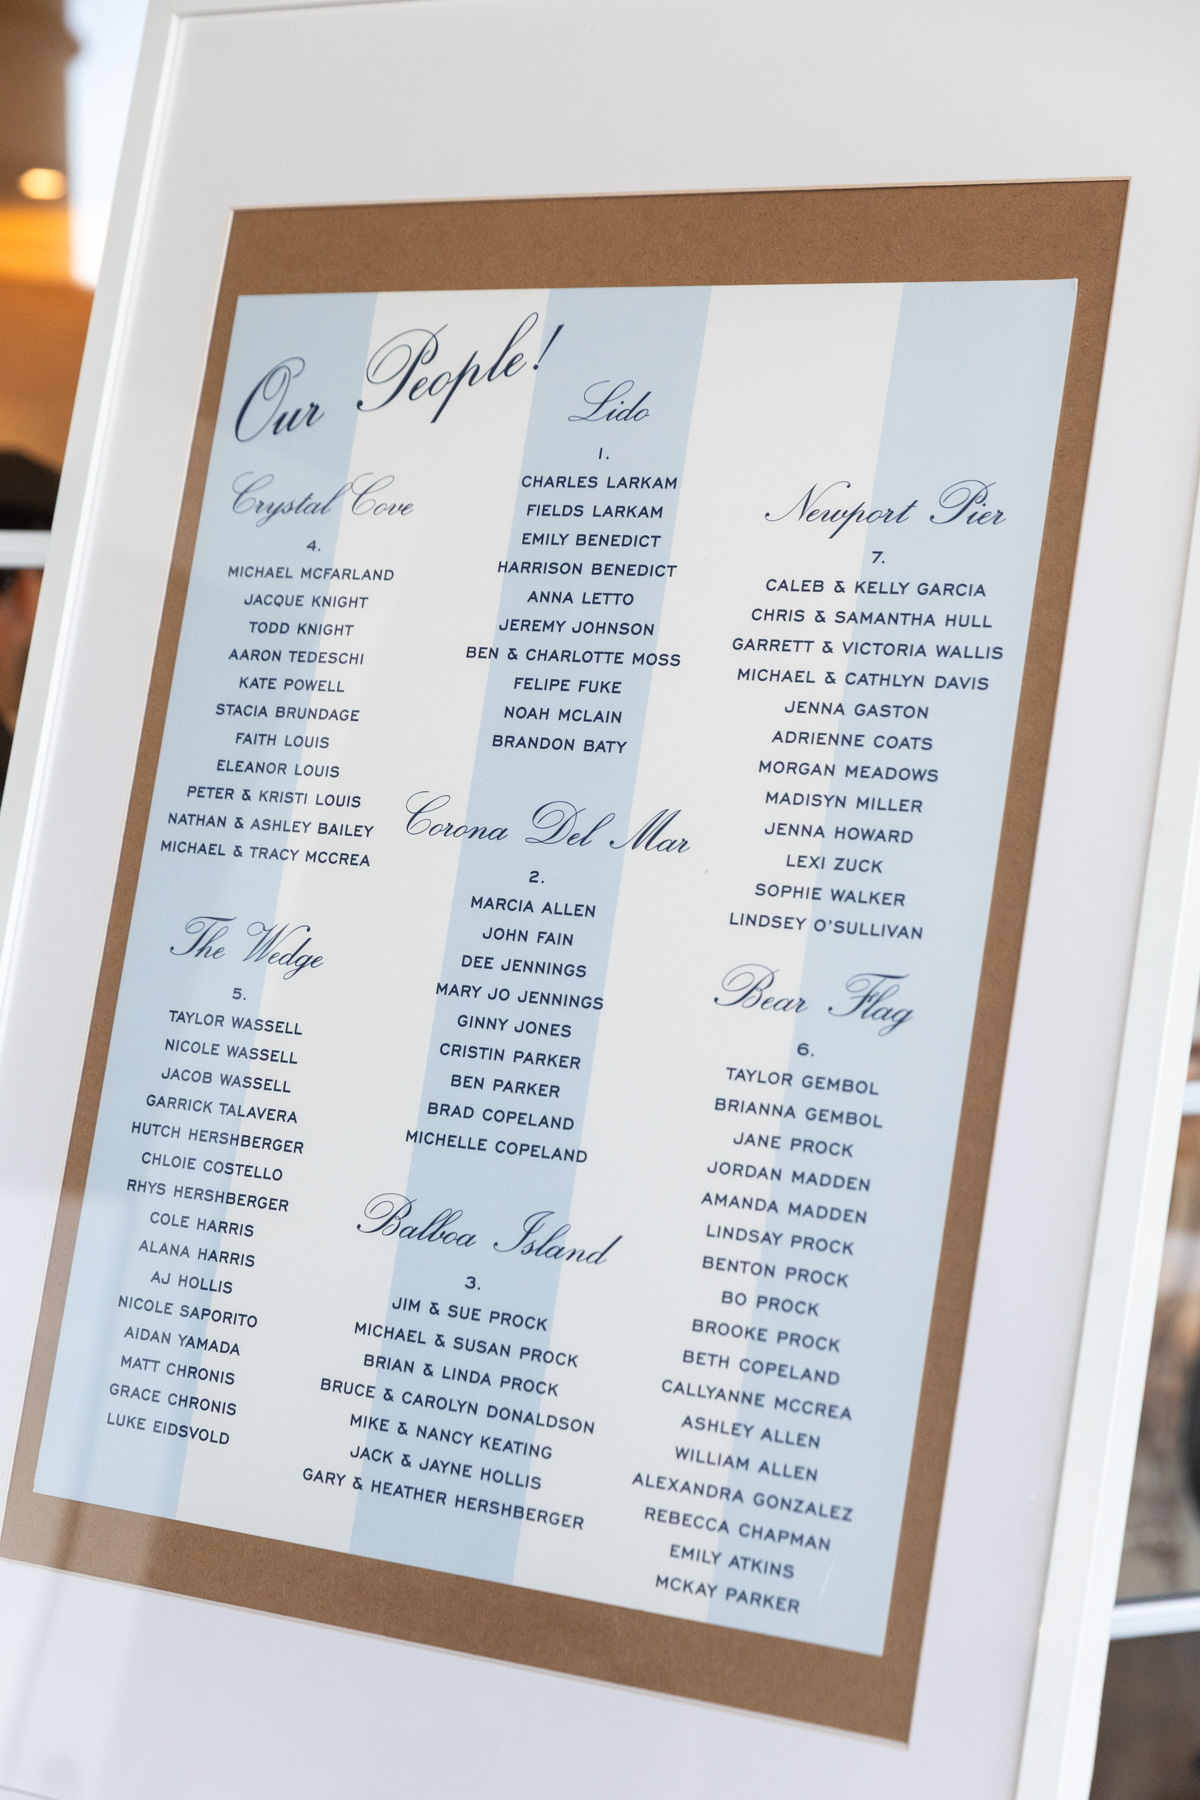 Our People!
Crystal Cove
4.
MICHAEL MCFARLAND
JACQUE KNIGHT
TODD KNIGHT
AARON TEDESCHI
KATE POWELL
STACIA BRUNDAGE
FAITH LOUIS
ELEANOR LOUIS
PETER & KRISTI LOUIS
NATHAN & ASHLEY BAILEY
MICHAEL & TRACY MCCREA
The Wedge
5.
TAYLOR WASSELL
NICOLE WASSELL
JACOB WASSELL
GARRICK TALAVERA
HUTCH HERSHBERGER
CHLOIE COSTELLO
RHYS HERSHBERGER
COLE HARRIS
ALANA HARRIS
AJ HOLLIS
NICOLE SAPORITO
AIDAN YAMADA
MATT CHRONIS
GRACE CHRONIS
LUKE EIDSVOLD
Lido
1.
CHARLES LARKAM
FIELDS LARKAM
EMILY BENEDICT
HARRISON BENEDICT
ANNA LETTO
JEREMY JOHNSON
BEN & CHARLOTTE MOSS
FELIPE FUKE
NOAH MCLAIN
BRANDON BATY
Corona Del Mar
2.
MARCIA ALLEN
JOHN FAIN
DEE JENNINGS
MARY JO JENNINGS
GINNY JONES
CRISTIN PARKER
BEN PARKER
BRAD COPELAND
MICHELLE COPELAND
Balboa Island
3.
JIM & SUE PROCK
MICHAEL & SUSAN PROCK
BRIAN & LINDA PROCK
BRUCE & CAROLYN DONALDSON
MIKE & NANCY KEATING
JACK & JAYNE HOLLIS
GARY & HEATHER HERSHBERGER
Newport Pier
7.
CALEB & KELLY GARCIA
CHRIS & SAMANTHA HULL
GARRETT & VICTORIA WALLIS
MICHAEL & CATHLYN DAVIS
JENNA GASTON
ADRIENNE COATS
MORGAN MEADOWS
MADISYN MILLER
JENNA HOWARD
LEXI ZUCK
SOPHIE WALKER
LINDSEY O'SULLIVAN
Bear Flag
6.
TAYLOR GEMBOL
BRIANNA GEMBOL
JANE PROCK
JORDAN MADDEN
AMANDA MADDEN
LINDSAY PROCK
BENTON PROCK
BO PROCK
BROOKE PROCK
BETH COPELAND
CALLYANNE MCCREA
ASHLEY ALLEN
WILLIAM ALLEN
ALEXANDRA GONZALEZ
REBECCA CHAPMAN
EMILY ATKINS
MCKAY PARKER